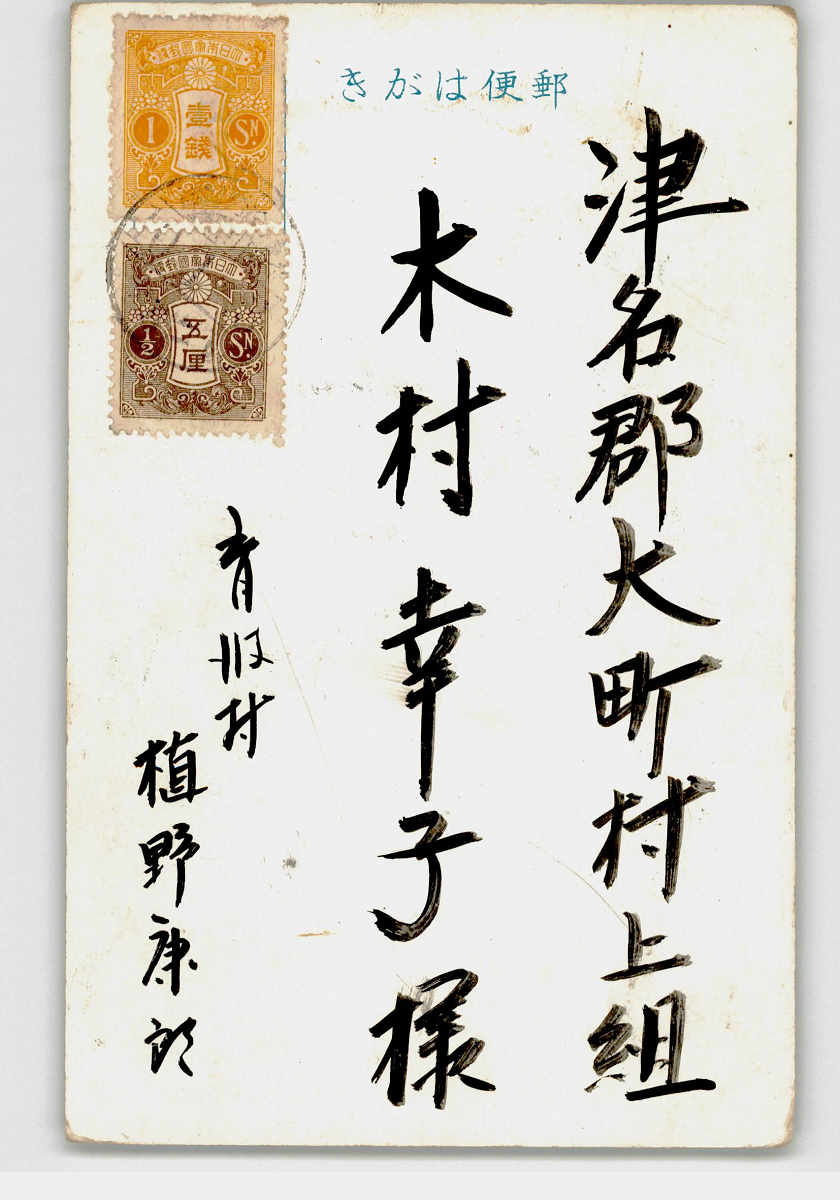 郵便はがき
津名郡大町村上組
木村幸子様
村
植野康郎
大日本帝國郵便
壹錢
1 SN
大日本帝國郵便
五厘
1/2 SN